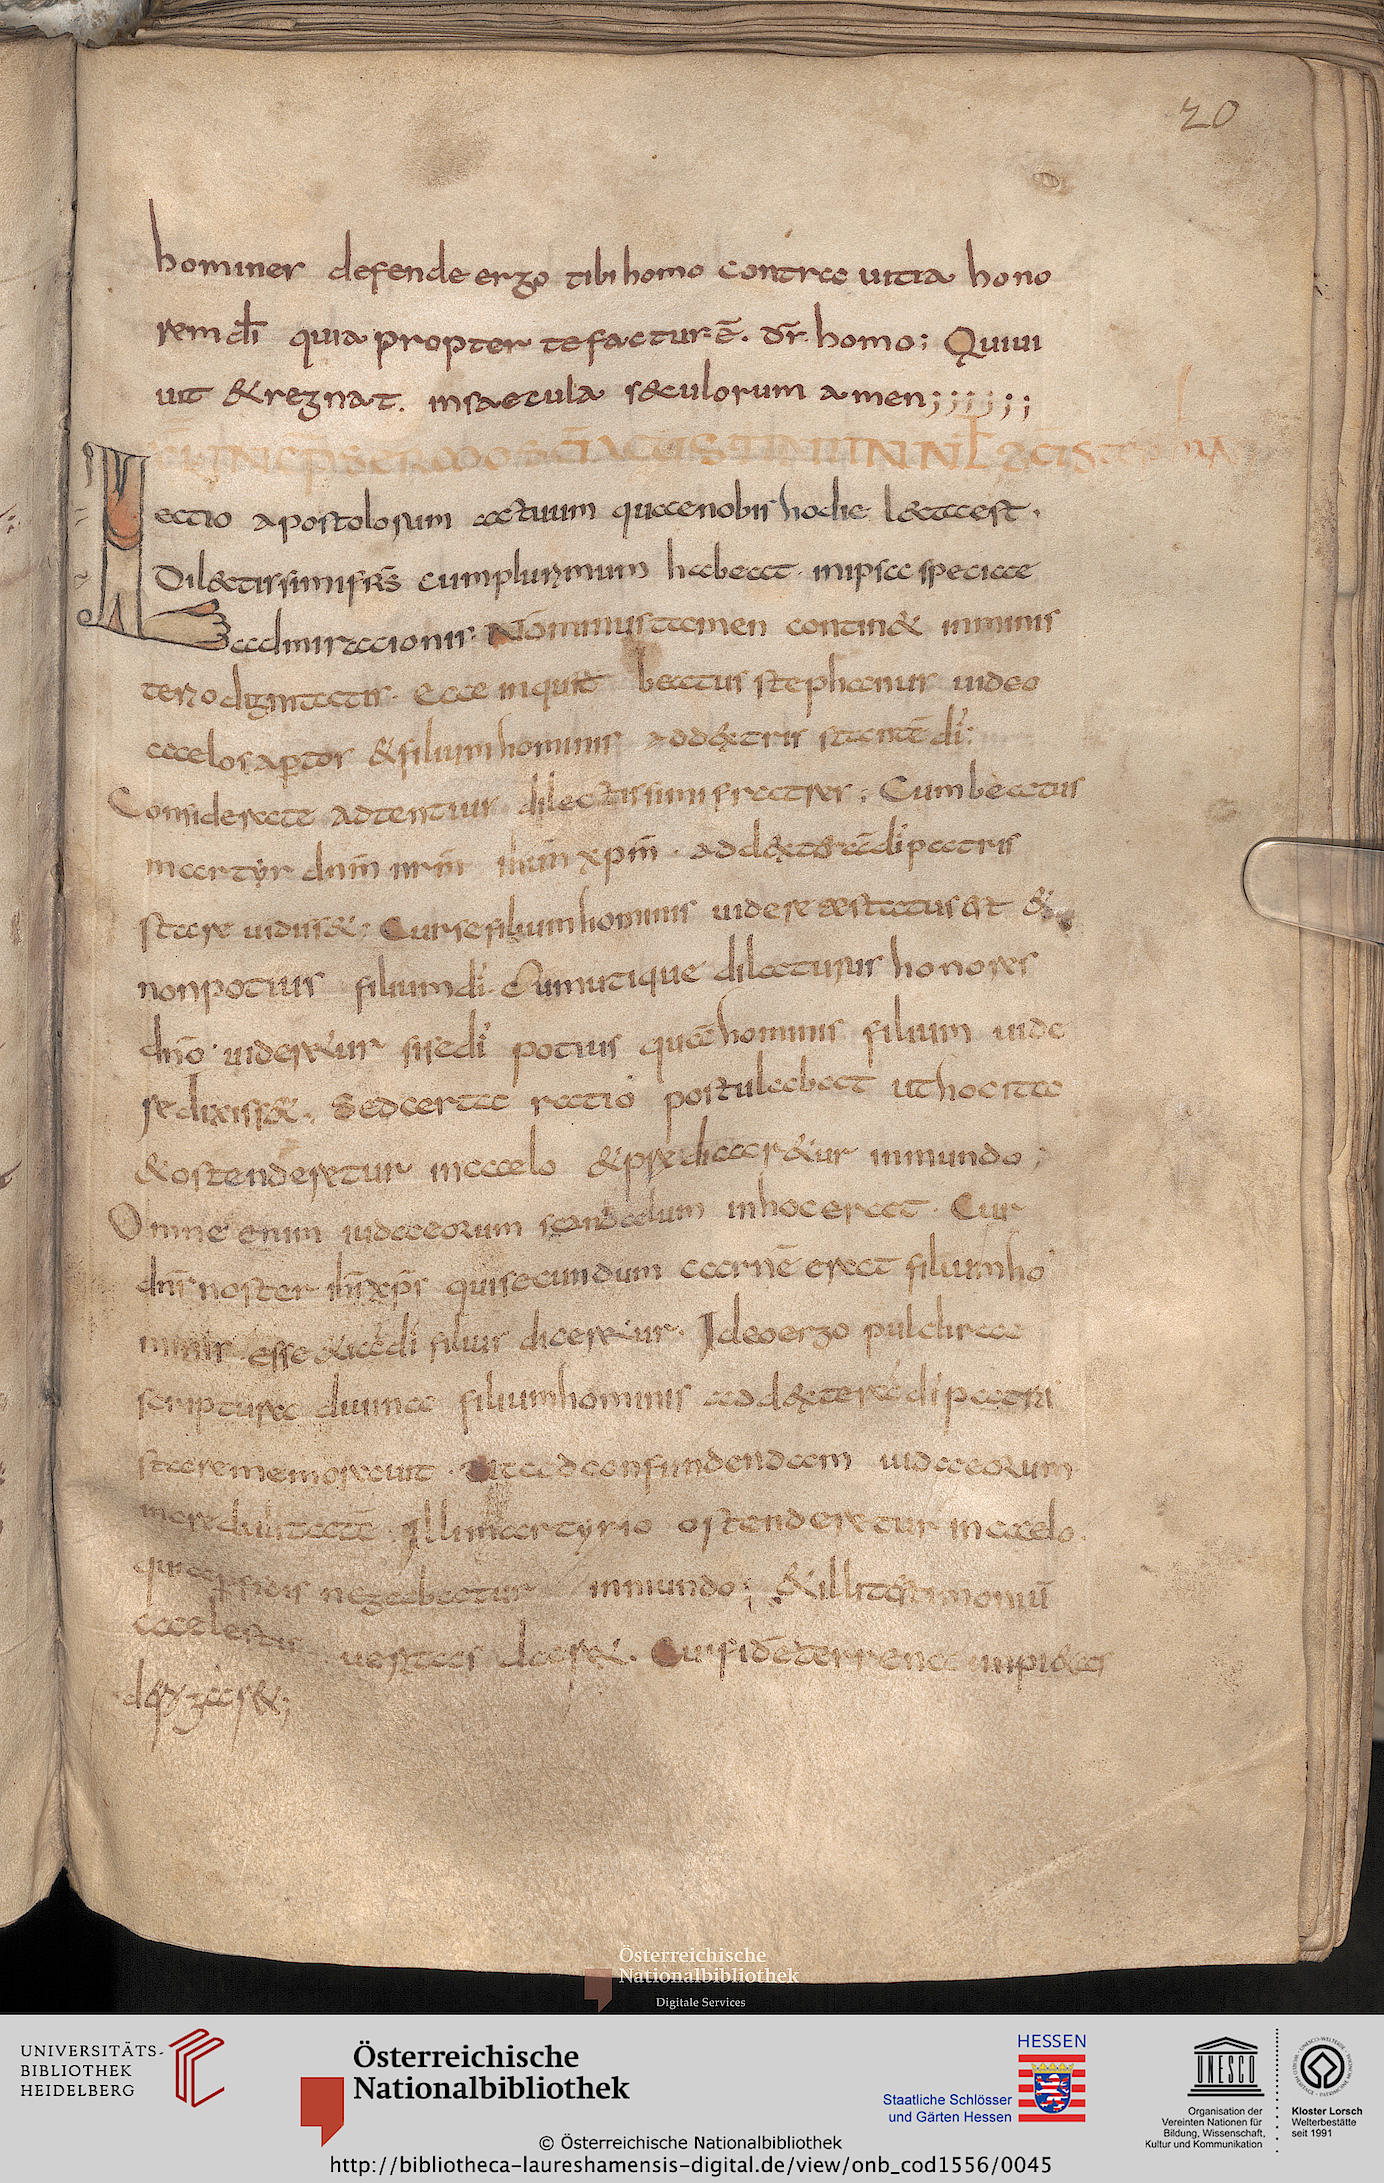 20
homines defende ergo tibi homo contra uitia hono
rem dī quia propter te factus ē. dr̄ homo; Qui ui
uit & regnat. in saecula s&culorum amen;;;;;;
Lectio apostolorum actuum quae nobis hodie l&ta est.
Dil&tissimi frs̄ cum plurimum habeat in ipsa specia
admiracionis. Non minus tamen contin& in minis
terio dignitatis. ecce inquit beatus stephanus uideo
caelos aptos & filium hominis ad d&tris stante dī;
Considerate adtentius dilectissimi fratres; Cum beatus
martyr dnm̄ nrm̄ ihm̄ xpm̄. ad d&terā dī patris
stare uidiss&; Cur se filium hominis uidere testatus est &
non potius filium dī. Cum utique dilaturus honores
dn̄o uider&ur si se dī potius quā hominis filium uide
re dixiss&. Sed certa ratio postulabat ut hoc ita
& ostenderetur in caelo & predicar&ur in mundo;
Omne enim iudaeorum scandalum in hoc erat. Cur
dn̄s noster ih̄s xp̄s qui secundum carnē erat filius ho
minis esse & iā dī filius dicer&ur. Ideo ergo pulchrae
scriptura diuina filium hominis ad d&terā dī patris
stare memorauit. ut ad confundendam iudaeorum
incredulitatē. Illi martyrio ostenderetur in caelo.
negabatur in mundo; & illi testimoniū
caelestis ueritas dar&. Cui fidē terrena impi&as
derogar&;
Österreichische
Nationalbibliothek
Digitale Services
UNIVERSITÄTS-
BIBLIOTHEK
HEIDELBERG
Österreichische
Nationalbibliothek
HESSEN
Staatliche Schlösser
und Gärten Hessen
UNESCO
Organisation der
Vereinten Nationen für
Bildung, Wissenschaft,
Kultur und Kommunikation
Kloster Lorsch
Welterbestätte
seit 1991
© Österreichische Nationalbibliothek
http://bibliotheca-laureshamensis-digital.de/view/onb_cod1556/0045